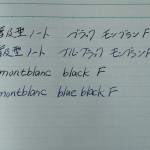 普及型ノート ブラック モンブラン F
普及型ノート ブルーブラック モンブラン F
montblanc black F
montblanc blue black F